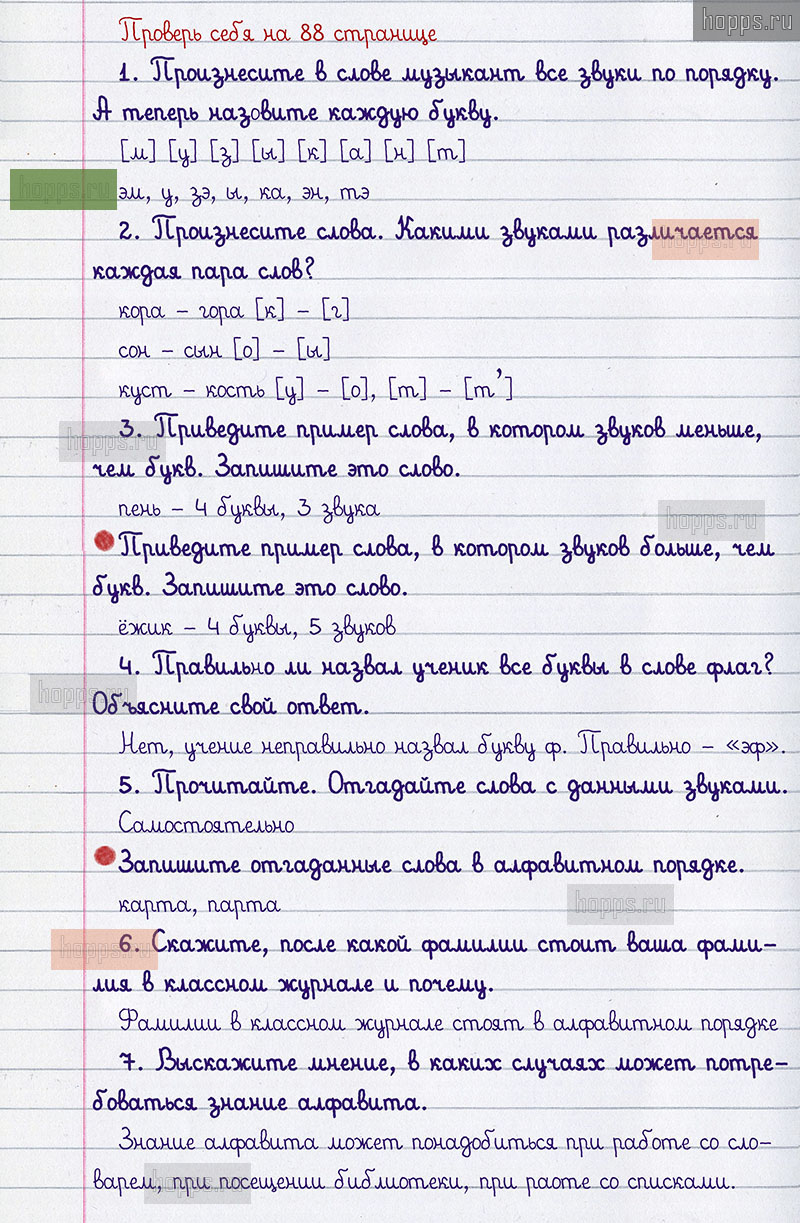 hopps.ru
Проверь себя на 88 странице
1. Произнесите в слове музыкант все звуки по порядку.
А теперь назовите каждую букву.
[м] [у] [з] [ы] [к] [а] [н] [т]
hopps.ru
эм, у, зэ, ы, ка, эн, тэ
2. Произнесите слова. Какими звуками различается
hopps.ru
каждая пара слов?
кора – гора [к] – [г]
сон – сын [о] – [ы]
куст – кость [у] – [о], [т] – [т’]
3. Приведите пример слова, в котором звуков меньше,
hopps.ru
чем букв. Запишите это слово.
пень – 4 буквы, 3 звука
hopps.ru
Приведите пример слова, в котором звуков больше, чем
букв. Запишите это слово.
ёжик – 4 буквы, 5 звуков
4. Правильно ли назвал ученик все буквы в слове флаг?
hopps.ru
Объясните свой ответ.
Нет, учение неправильно назвал букву ф. Правильно – «эф».
5. Прочитайте. Отгадайте слова с данными звуками.
Самостоятельно
Запишите отгаданные слова в алфавитном порядке.
карта, парта
hopps.ru
6. Скажите, после какой фамилии стоит ваша фами–
hopps.ru
лия в классном журнале и почему.
Фамилии в классном журнале стоят в алфавитном порядке
7. Выскажите мнение, в каких случаях может потре–
боваться знание алфавита.
Знание алфавита может понадобиться при работе со сло–
варем, при посещении библиотеки, при раоте со списками.
hopps.ru